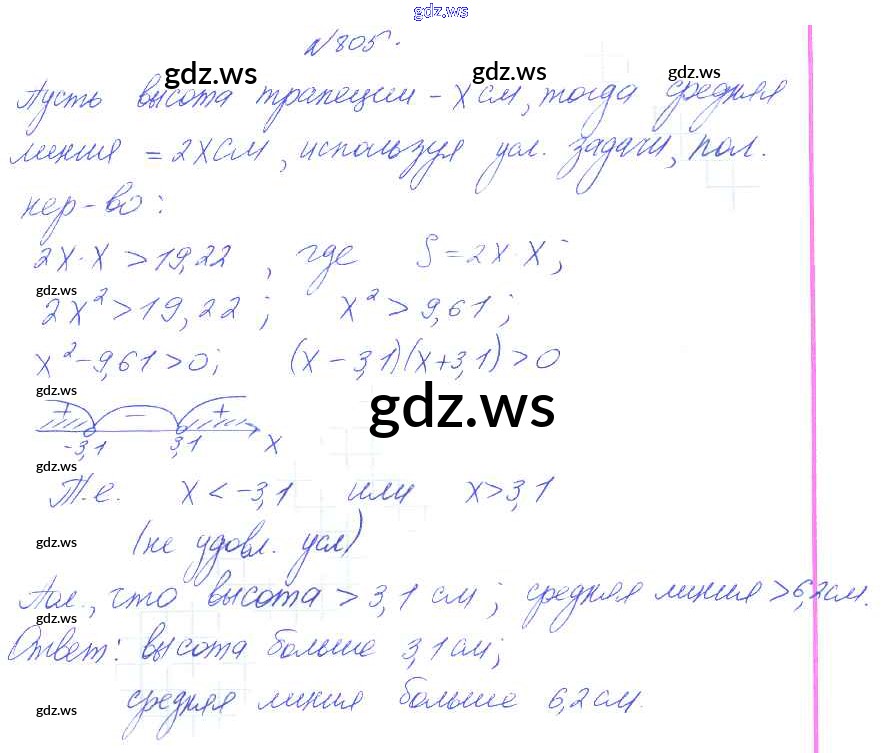 gdz.ws
№805.
gdz.ws gdz.ws gdz.ws
Пусть высота трапеции - x см, тогда средняя
линия = 2x см, используя усл. задачи, пол.
нер-во:
2x·x > 19,22 , где S = 2x·x;
gdz.ws
2x² > 19,22 ; x² > 9,61 ;
x² - 9,61 > 0; (x - 3,1)(x + 3,1) > 0
gdz.ws
gdz.ws
+ - +
-3,1 3,1 x
gdz.ws
Т.е. x < -3,1 или x > 3,1
gdz.ws
(не удовл. усл)
Пол., что высота > 3,1 см ; средняя линия > 6,2 см.
gdz.ws
Ответ: высота больше 3,1 см;
средняя линия больше 6,2 см.
gdz.ws